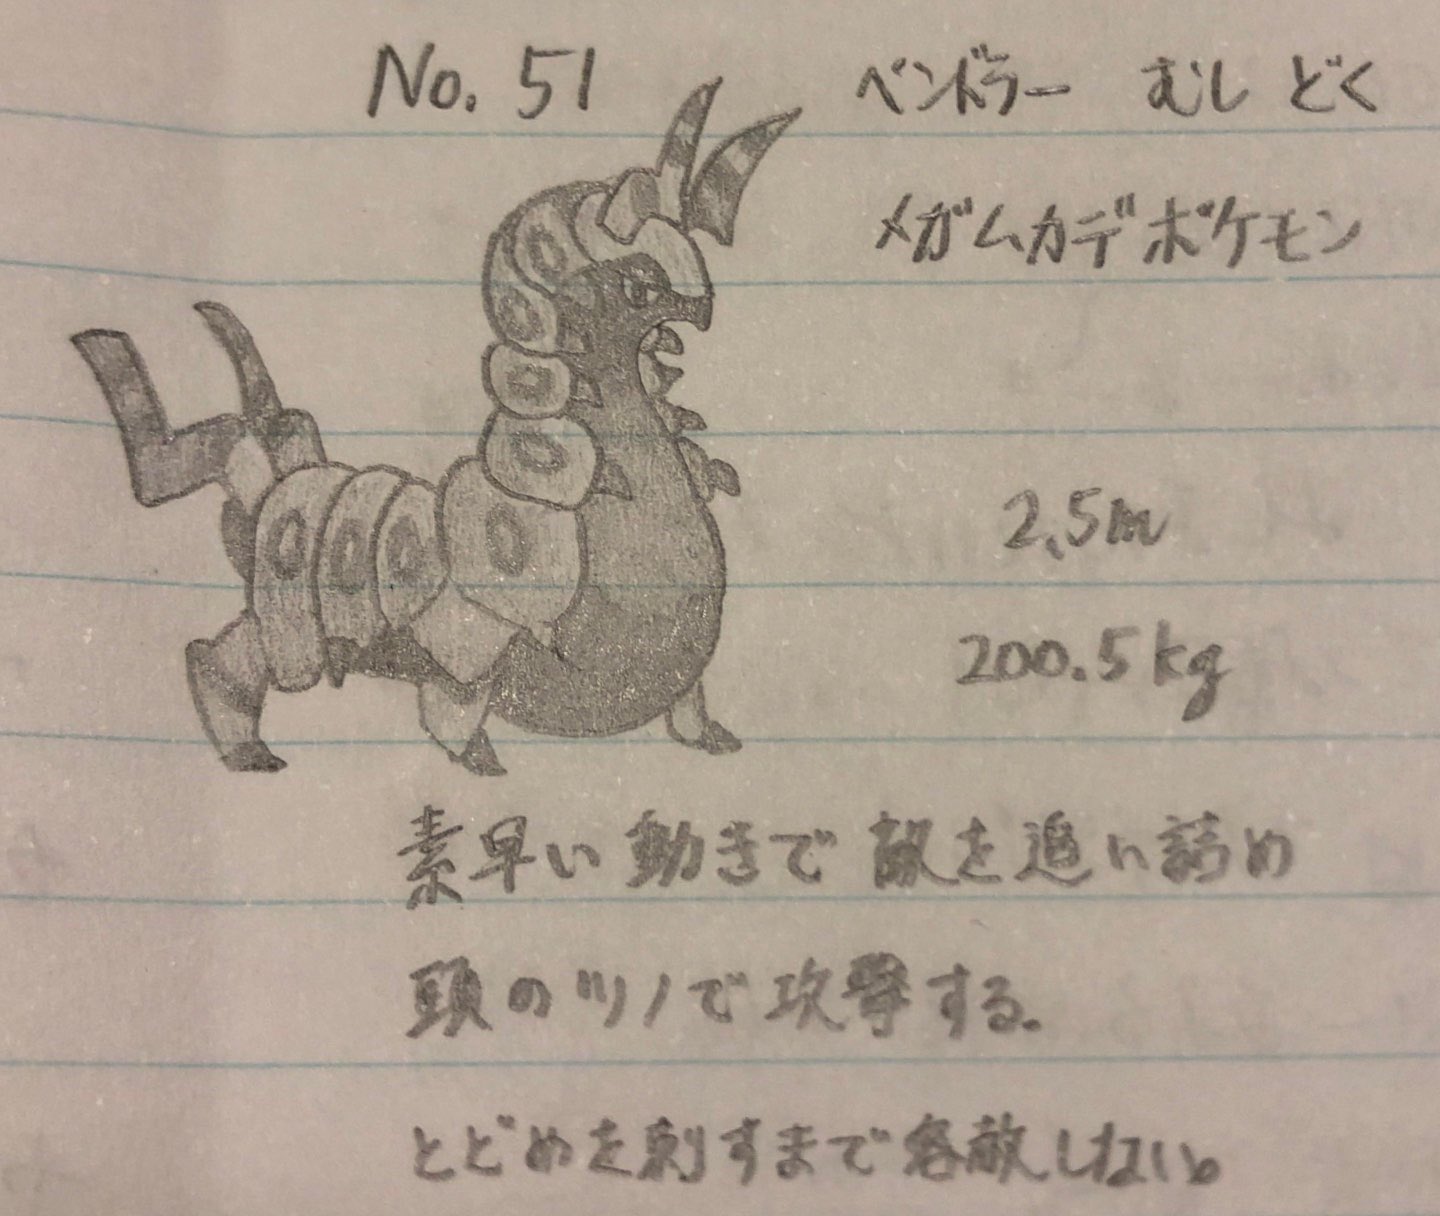 No. 51 ペンドラー むし どく
メガムカデポケモン
2.5m
200.5kg
素早い動きで敵を追い詰め
頭のツノで攻撃する.
とどめを刺すまで容赦しない。